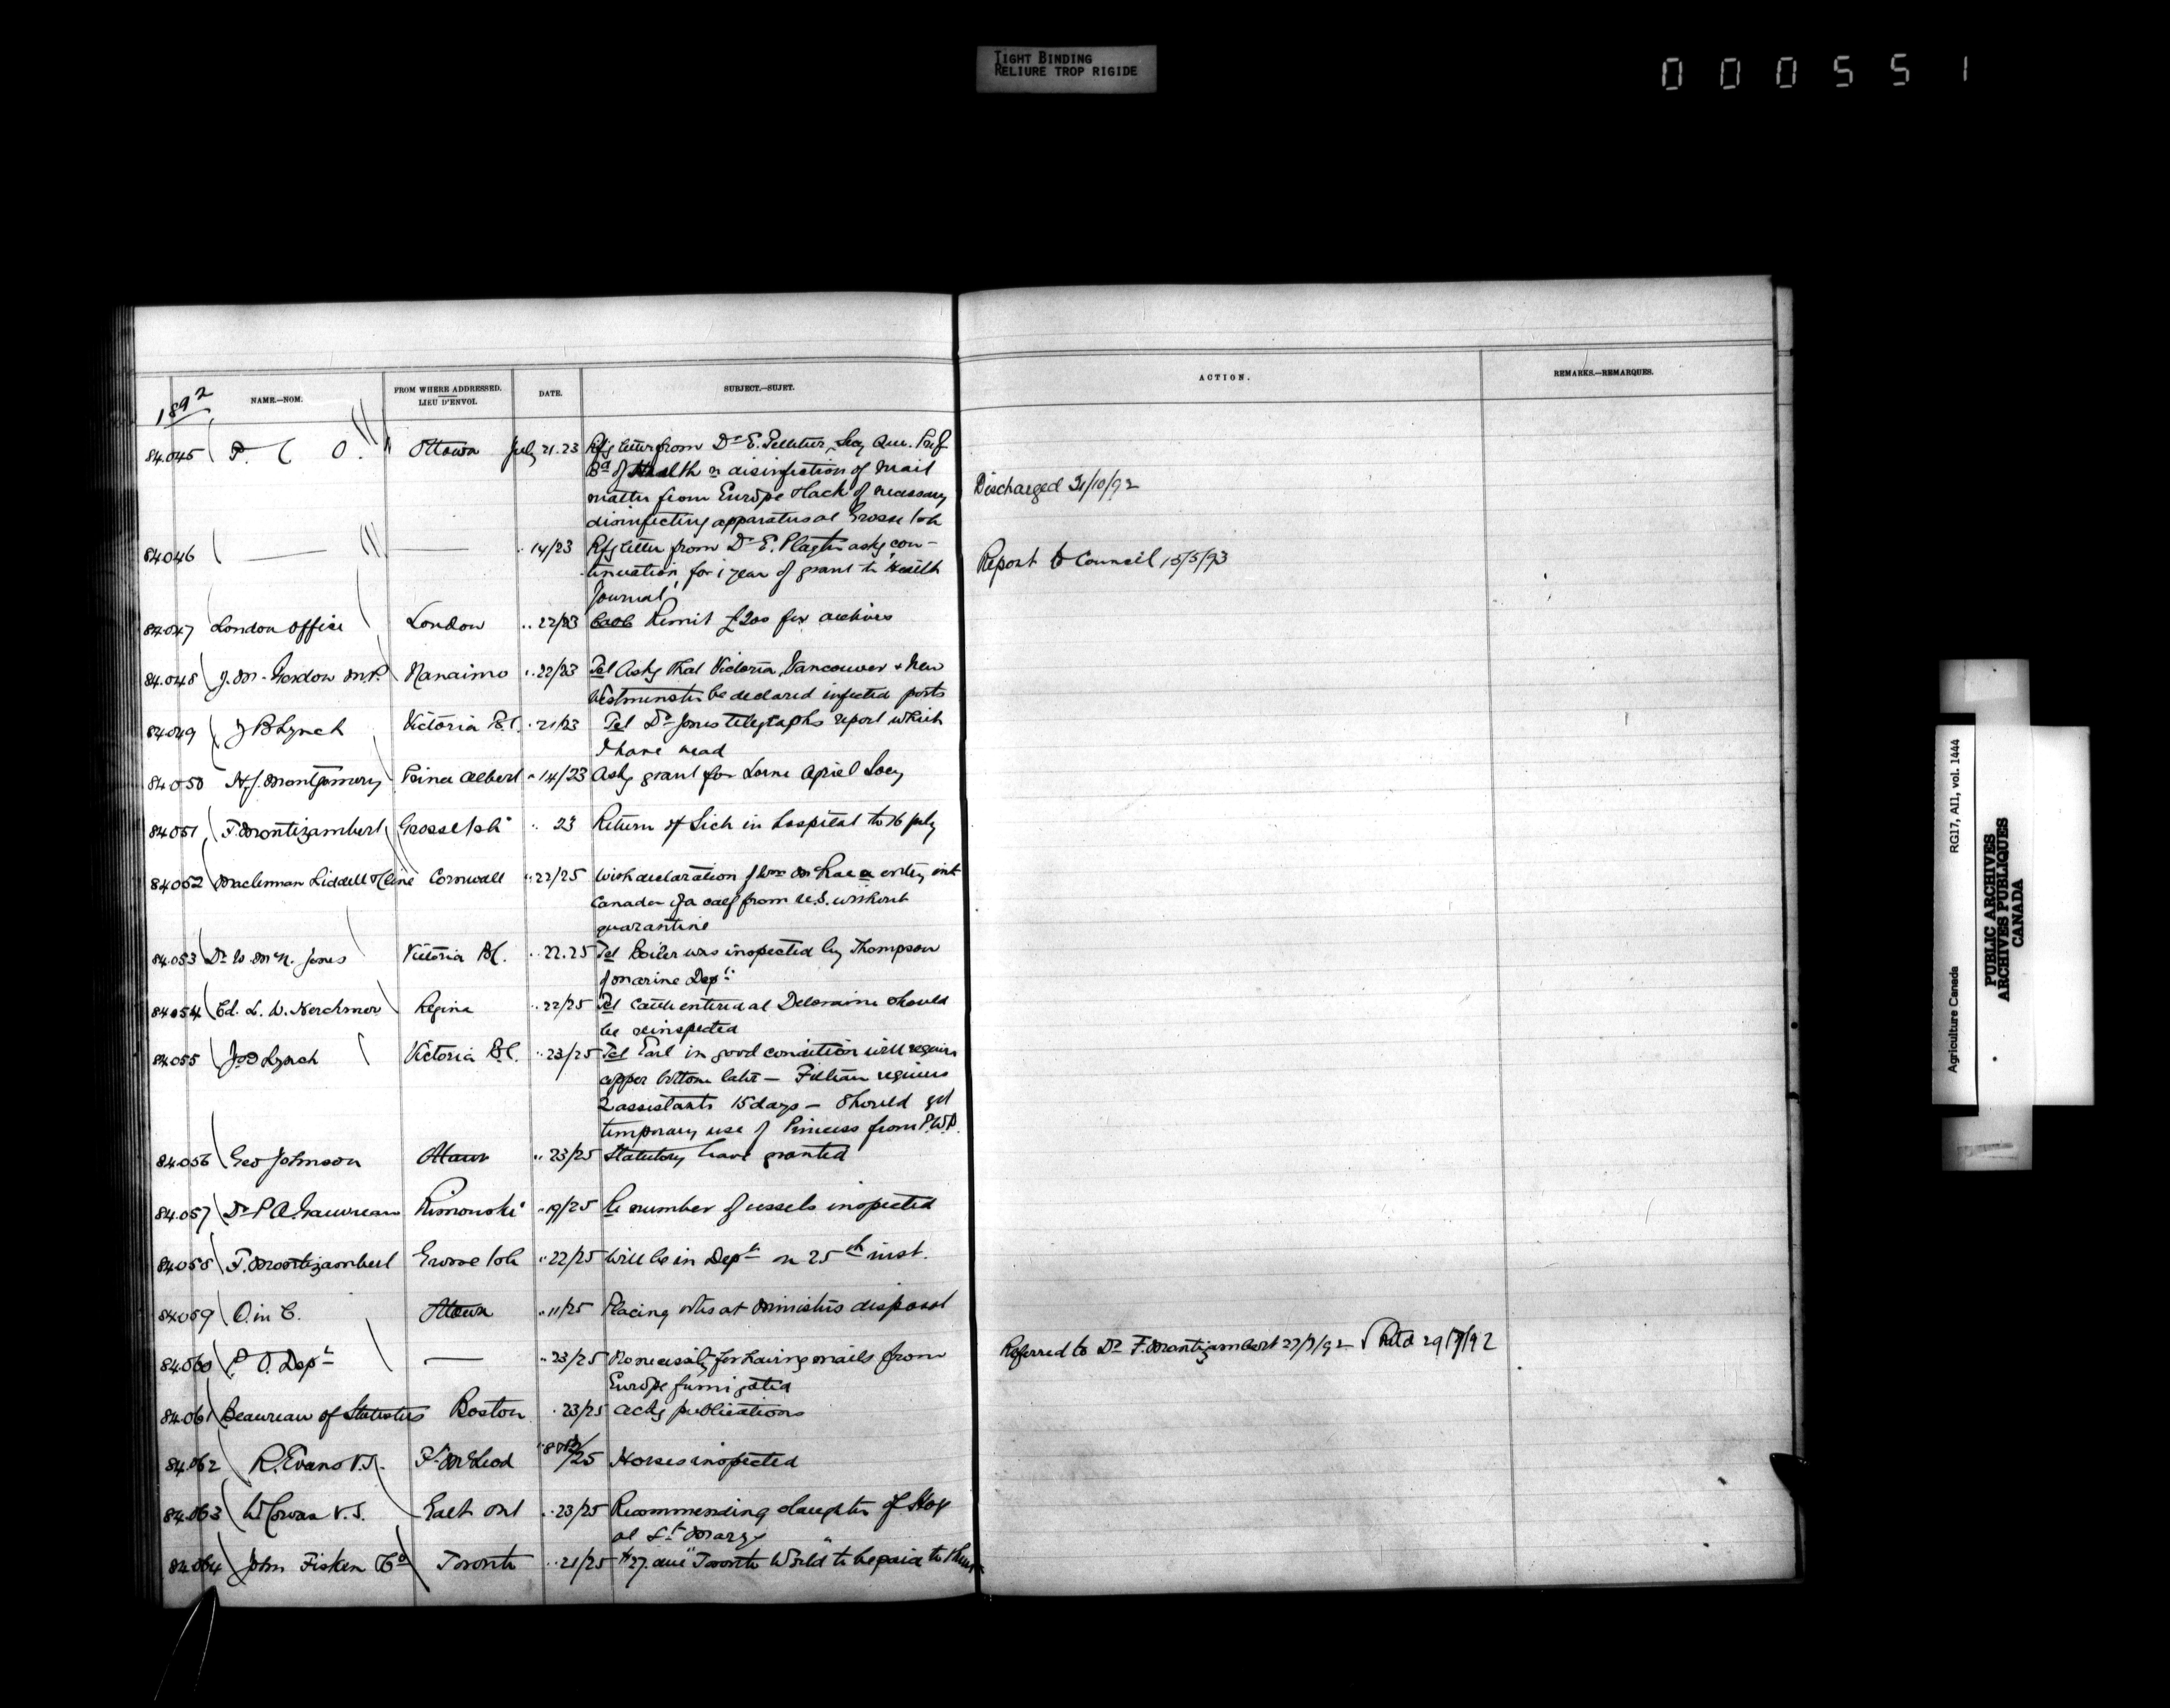 TIGHT BINDING
RELIURE TROP RIGIDE
000551
1892
NAME.—NOM.
FROM WHERE ADDRESSED.
LIEU D'ENVOI.
DATE.
SUBJECT.—SUJET.
ACTION.
REMARKS.—REMARQUES.
84.045 P. C. O. Ottawa July 21.23 Rfg letter from Dr E. Pelletier, Secy Que. Prov
Bd of Health re disinfection of mail
matter from Europe & lack of necessary
disinfecting apparatus at Grosse Isle
Discharged 31/10/92
84.046 — — .. 14/23 Rfg letter from Dr E. Playter askg con-
tinuation, for 1 year of grant to Health
Journal
Report to Council 15/5/93
84.047 London Office London .. 22/23 Remit £200 for archives
84.048 Gordon M.P. Nanaimo .. 22/23 Tel Askg that Victoria, Vancouver & New
Westminster be declared infected ports
84.049 J B Lynch Victoria B.C. .. 21/23 Tel Dr Jones telegraphs report which
I have read
84.050 H. J. Montgomery Prince Albert .. 14/23 Askg grant for Lorne Agricl Socy
84.051 F. Montizambert Grosse Isle .. 23 Return of Sick in hospital to 16 July
84.052 Maclennan Liddell & Cline Cornwall .. 22/25 With declaration of Wm McRae re entry into
Canada of a calf from U.S. without
quarantine
84.053 Dr W. McN. Jones Victoria B.C. .. 22.25 Tel Boiler was inspected by Thompson
of Marine Dept
84.054 L. W. Herchmer Regina .. 22/25 Tel Cattle entered at Deloraine should
be reinspected
84.055 Lynch Victoria B.C. .. 23/25 Tel Earl in good condition will require
copper bottom later — requires
2 assistants 15 days — Should get
temporary use of Princess from P.W.D.
84.056 Geo Johnson Ottawa .. 23/25 Statutory leave granted
84.057 Dr P A. Gauvreau Rimouski .. 19/25 Re number of vessels inspected
84.058 F. Montizambert Grosse Isle .. 22/25 Will be in Dept on 25th inst.
84.059 O. in C. Ottawa .. 11/25 Placing at Ministers disposal
84.060 P. O. Dept — .. 23/25 No necessity for having mails from
Europe fumigated
Referred to Dr F. Montizambert 27/7/92 Retd 29/7/92
84.061 Beaureau of Statistics Boston .. 23/25 askg publications
84.062 R. Evans V.S. Ft McLeod /25 Horses inspected
84.063 W Cowan V.S. Galt Ont .. 23/25 Recommending slaughter of Hogs
at St Marys
84.064 John Fisken & Co Toronto .. 21/25 $27. due "Toronto World" to be paid to them
Agriculture Canada RG17, AII, vol. 1444
PUBLIC ARCHIVES
ARCHIVES PUBLIQUES
CANADA